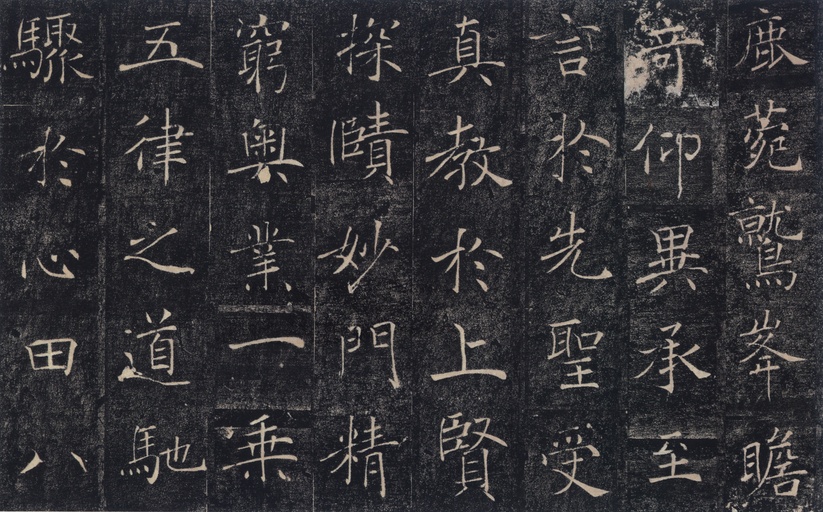 鹿菀鷲峯瞻
竒仰異承至
言於先聖受
真教於上賢
探賾妙門精
窮奥業一乗
五律之道馳
驟於心田八